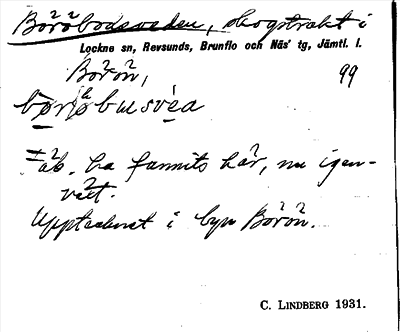 Böröbodsveden, skogstrakt i
Lockne sn, Revsunds, Brunflo och Näs' tg, Jämtl. l.
Börön, 99
Fäb. ha funnits här, nu igen-
växt.
Upptecknat i byn Börön.
C. LINDBERG 1931.